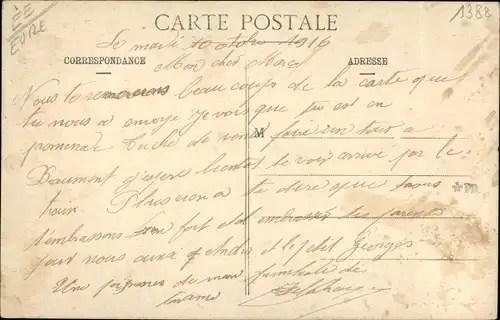 EURE
1388
CARTE POSTALE
Le mardi 10 octobre 1916
CORRESPONDANCE
ADRESSE
Mon cher Marcel
Nous te remercions beaucoup de la carte que
tu nous a envoye je vois que tu est en
promenade tuche de venir faire un tour a
M
Beaumont j'espere bientot te voir arrivé par le
train Plus rien a te dire que nous
t'embrassons bien fort et embrasse tes parents
pour nous aussi et André et le petit Georges
Une poignee de main familiale de